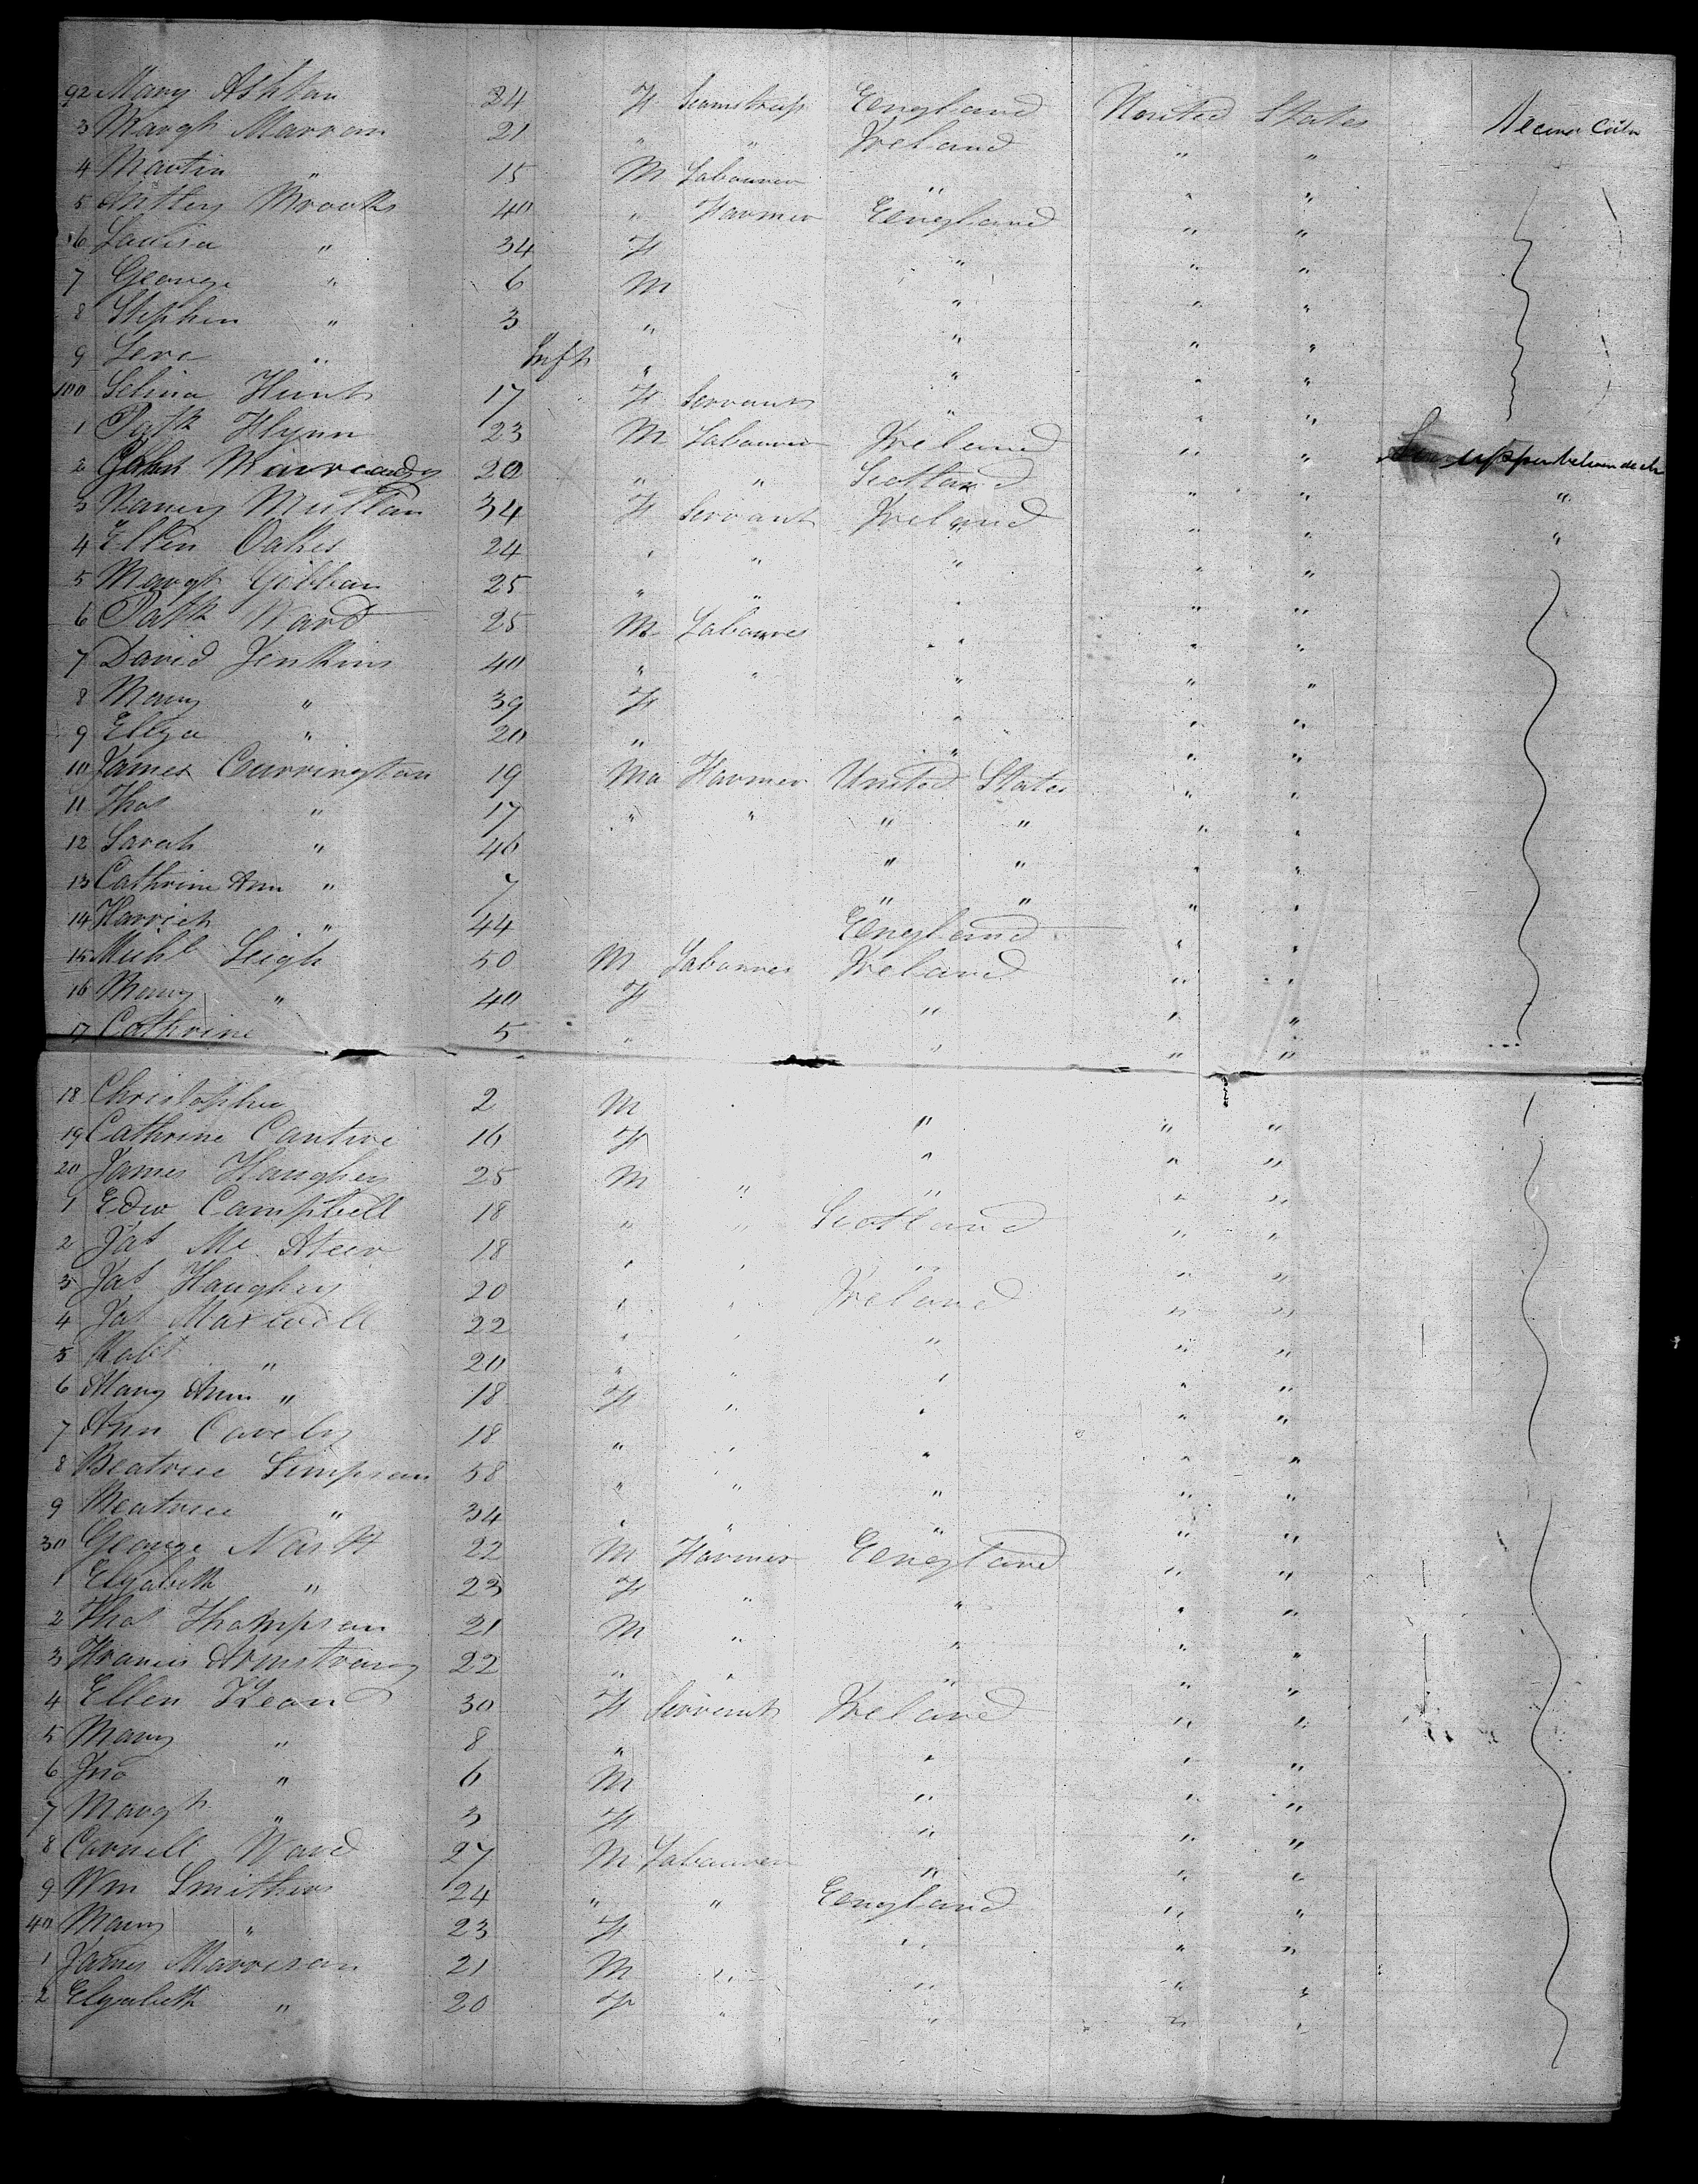 92 Mary Ashton 24 F Seamstress England United States
3 Margt Marron 21 " " Ireland " "
4 Martin " 15 M Labourer " " "
5 Brooks 40 " Farmer England " "
6 Louisa " 34 F " " "
7 George " 6 M " " "
8 Stephen " 3 " " " "
9 " Inft " " " "
100 Selina Hunt 17 F Servant " " "
1 Patk Flynn 23 M Labourer Ireland " "
2 John 20 " " Scotland " " "
3 Nancy Mullan 34 F Servant Ireland " " "
4 Ellen Oakes 24 " " " " "
5 Margt Gibban 25 " " " " "
6 Patk Ward 25 M Labourer " " "
7 David Jenkins 40 " " " " "
8 Mary " 39 F " " "
9 Eliza " 20 " " " "
10 James Currington 19 Ma Farmer United States " "
11 Thos " 17 " " " " " "
12 Sarah " 46 " " " "
13 Cathrine Ann " 7 " " " "
14 Harriet " 44 England " "
15 Michl Leigh 50 M Labourer Ireland " "
16 Mary " 40 F " " "
17 Cathrine 5 " " " "
18 Christopher 2 M " " "
19 Cathrine 16 F " " "
20 James Haughey 25 M " " " "
1 Edw Campbell 18 " " Scotland " "
2 Jas Mc Ateer 18 " " " " "
3 Jas Haughey 20 " " Ireland " "
4 Jas Maxwell 22 " " " " "
5 Robt " 20 " " " " "
6 Mary Ann " 18 F " " " "
7 Ann 18 " " " " "
8 Beatrice Simpson 58 " " " " "
9 Beatrice " 34 " " " " "
30 George 22 M Farmer England " "
1 Elizabeth " 23 F " " " "
2 Thos Thompson 21 M " " " "
3 Francis Armstrong 22 " " " " "
4 Ellen Kean 30 F Servant Ireland " "
5 Mary " 8 " " " "
6 Jno " 6 M " " "
7 Margt " 3 F " " "
8 Ward 27 M Labourer " " "
9 Wm Smithers 24 " " England " "
40 Mary " 23 F " " "
1 James Morrison 21 M " " " "
2 Elizabeth " 20 F " " " "